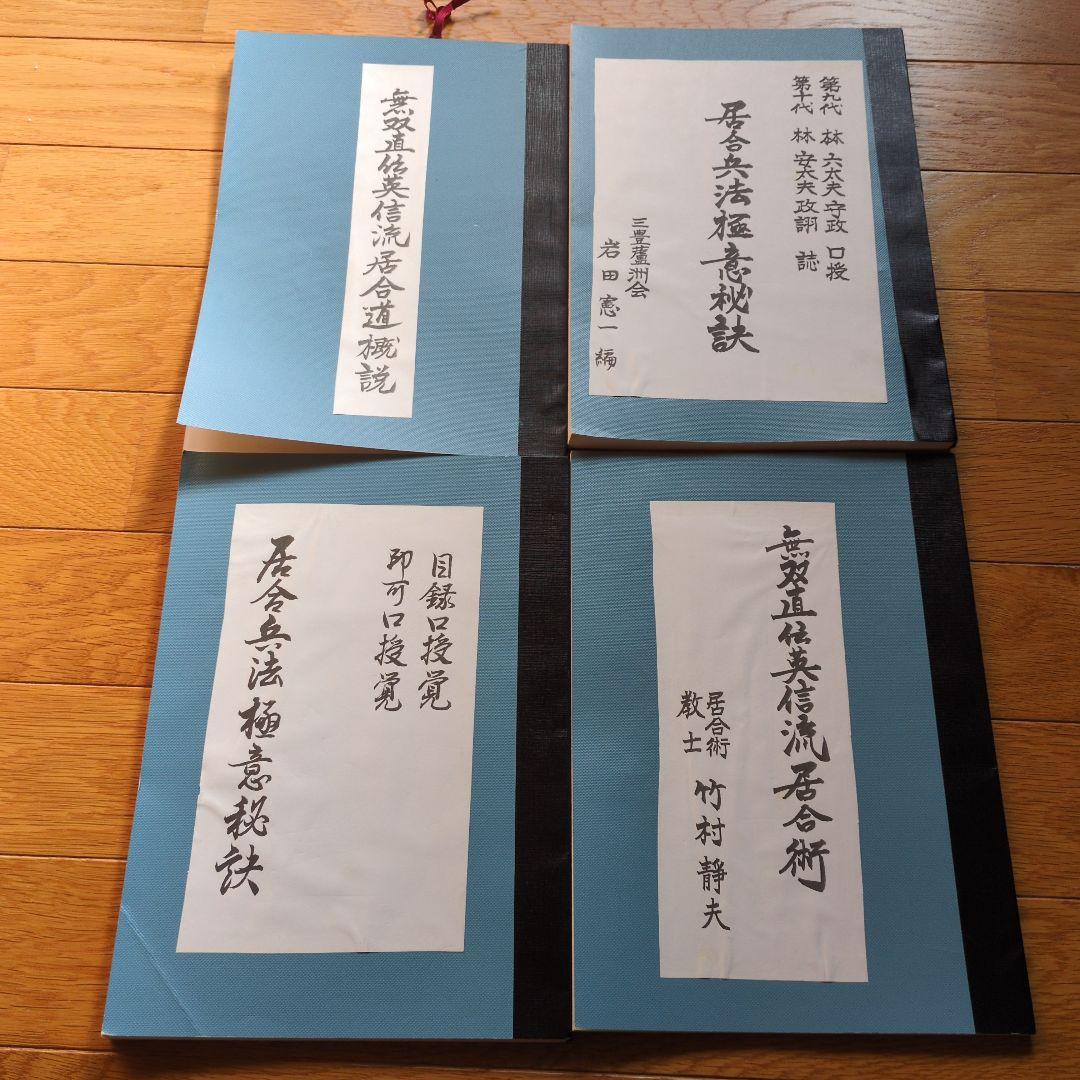 無双直伝英信流居合道概説
第九代 林 六太夫守政 口授
第十代 林 安太夫政詡 誌
居合兵法極意秘訣
三豊蘆洲会
岩田憲一編
目録口授覚
印可口授覚
居合兵法極意秘訣
無双直伝英信流居合術
居合術
教士 竹村静夫